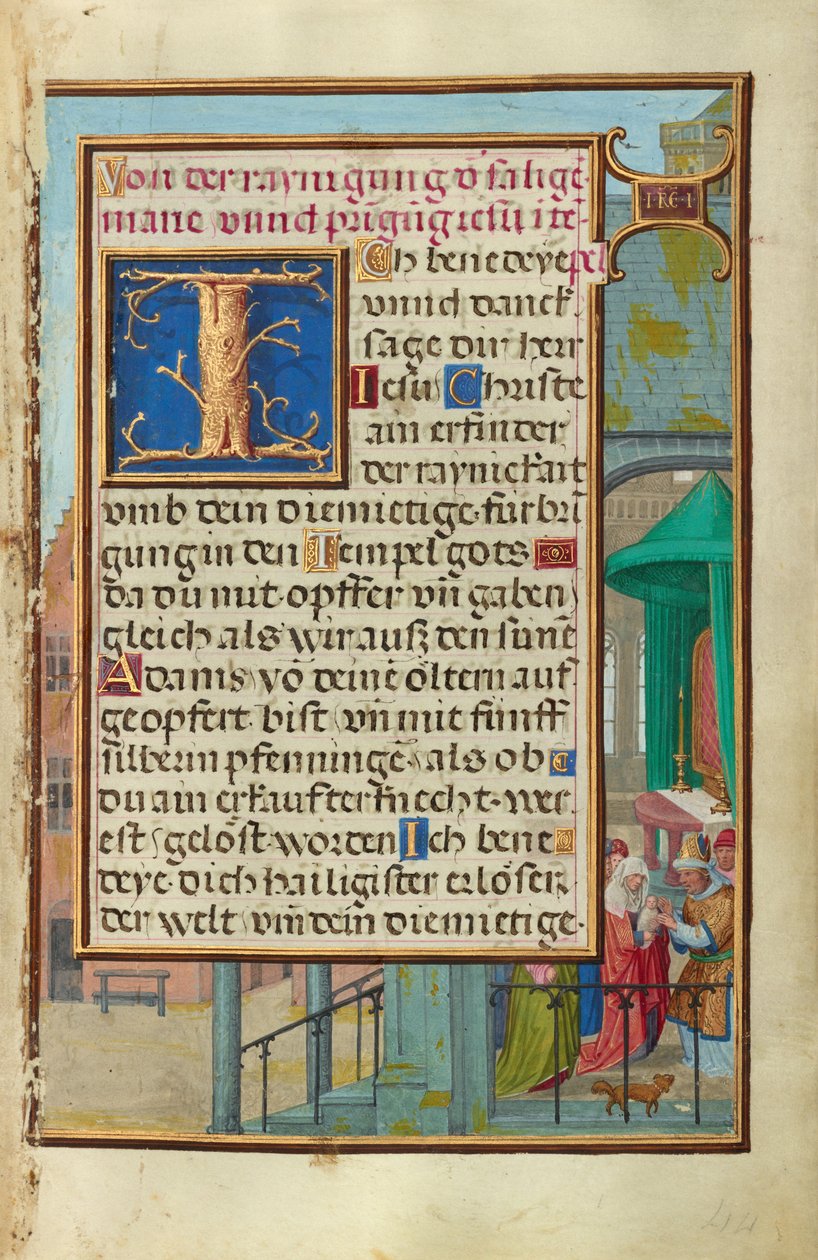 Von der raynigung d' salige͂
marie vnnd prin͂gu͂g iesu i te͂-
pel
ICh benedeye
vnnd danck
sage dir herr
Iesu Christe
ain erfinder
der raynickait
vmb dein diemietige fürbri͂
gung in den Tempel gots
da du mit opffer vn͂ gaben
gleich als wir ausz den süne͂
Adams vo͂ deine͂ öltern auf
geopfert bist vn͂ mit fünff
silberin pfenninge͂ als ob
du ain erkaufter knecht wer
est gelöst worden Ich bene
deye dich hailigister erlöser
der welt vn͂ dein͂ diemietige
44